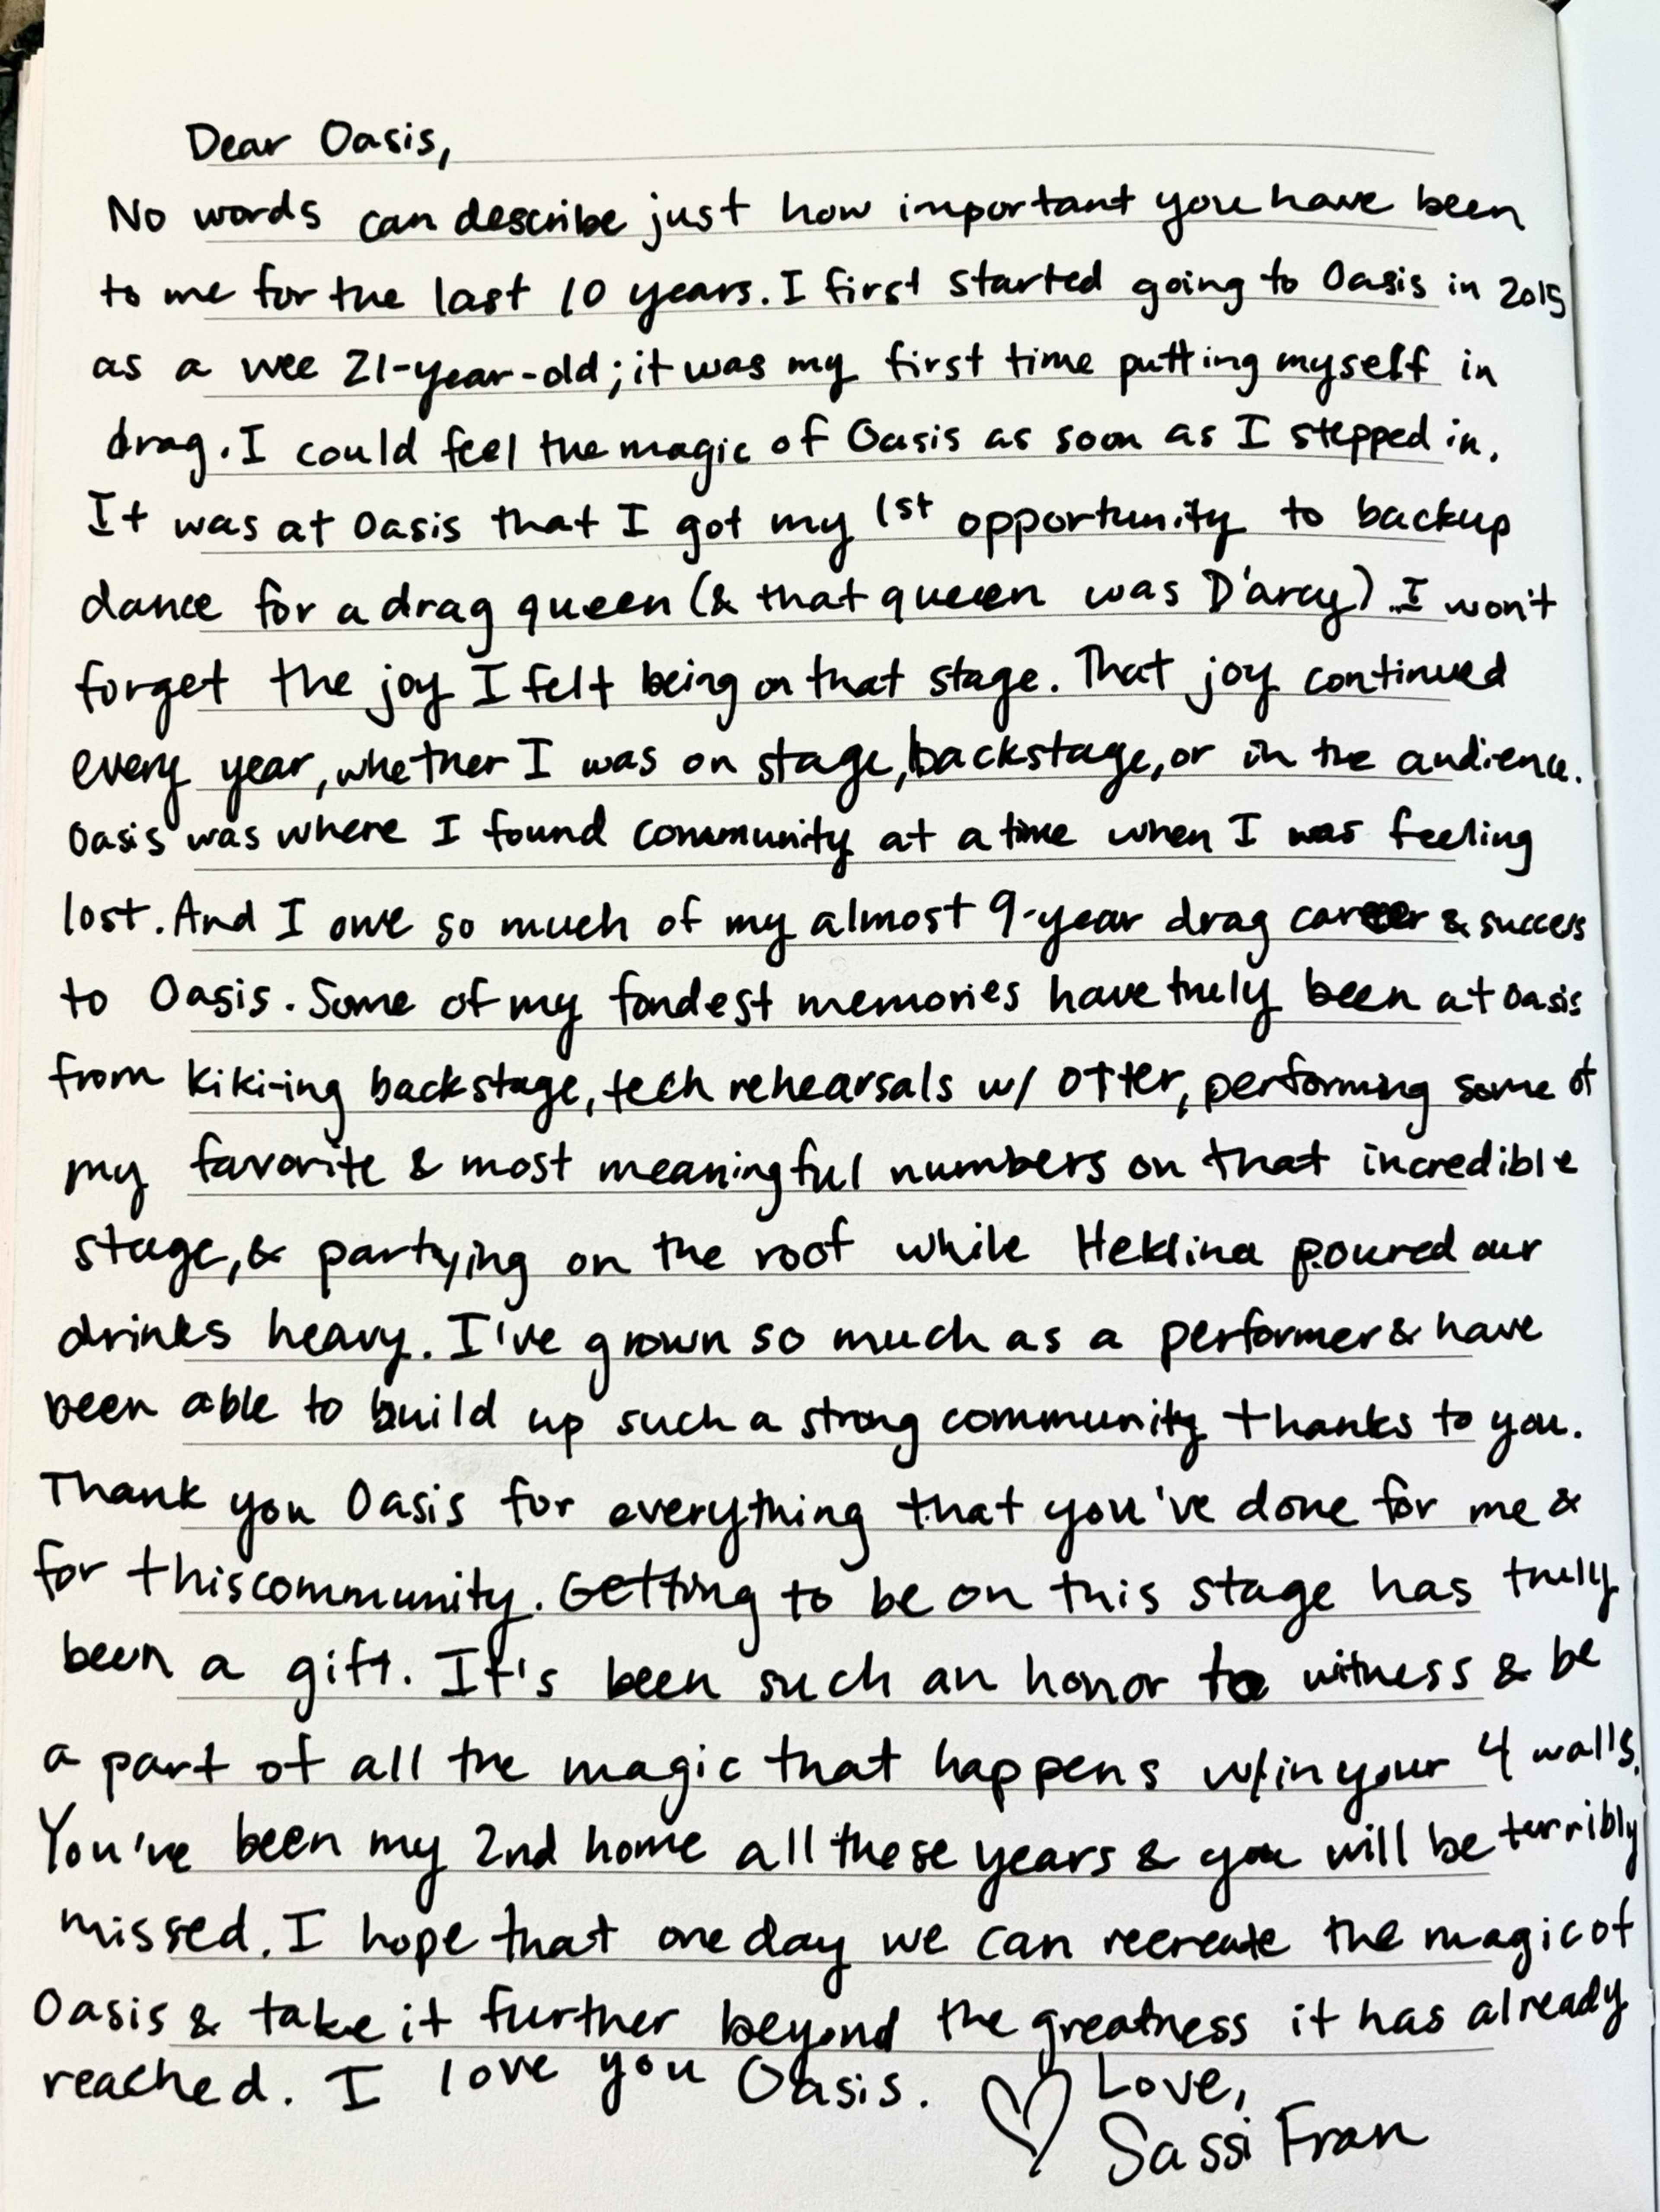 Dear Oasis,
No words can describe just how important you have been
to me for the last 10 years. I first started going to Oasis in 2015
as a wee 21-year-old; it was my first time putting myself in
drag. I could feel the magic of Oasis as soon as I stepped in.
It was at Oasis that I got my 1st opportunity to backup
dance for a drag queen (& that queen was D'arcy). I won't
forget the joy I felt being on that stage. That joy continued
every year, whether I was on stage, backstage, or in the audience.
Oasis was where I found community at a time when I was feeling
lost. And I owe so much of my almost 9-year drag career & success
to Oasis. Some of my fondest memories have truly been at Oasis
from kiki-ing backstage, tech rehearsals w/ Otter, performing some of
my favorite & most meaningful numbers on that incredible
stage, & partying on the roof while Heklina poured our
drinks heavy. I've grown so much as a performer & have
been able to build up such a strong community thanks to you.
Thank you Oasis for everything that you've done for me &
for this community. Getting to be on this stage has truly
been a gift. It's been such an honor to witness & be
a part of all the magic that happens w/in your 4 walls.
You've been my 2nd home all these years & you will be terribly
missed. I hope that one day we can recreate the magic of
Oasis & take it further beyond the greatness it has already
reached. I love you Oasis. ♡ Love,
Sassi Fran